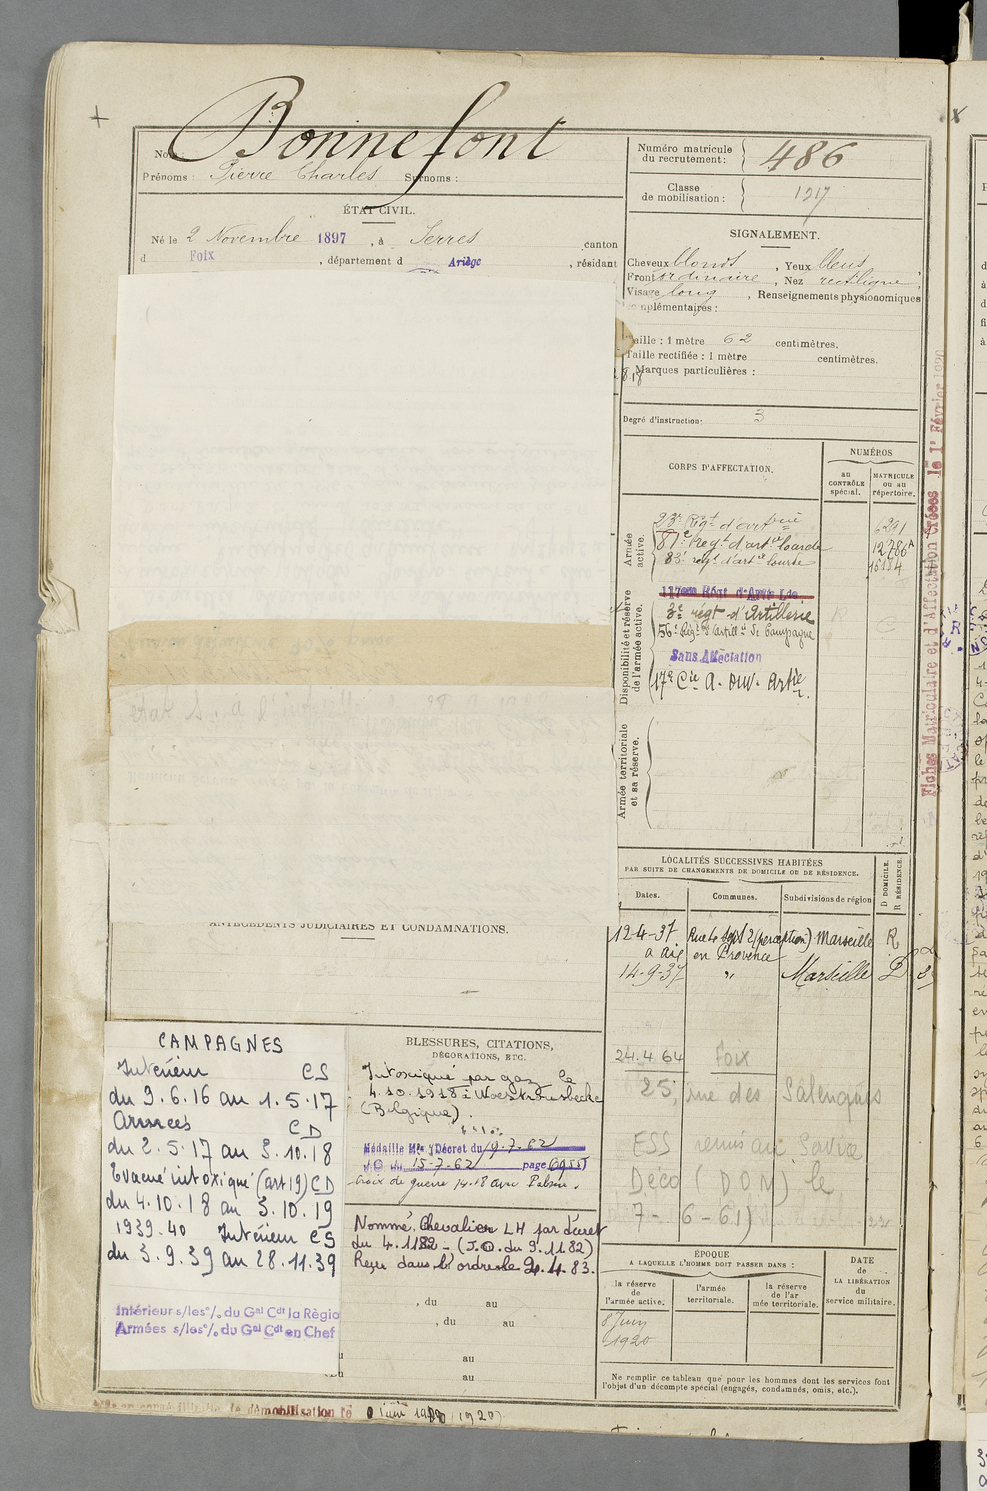 Bonnefont
Nom :
Prénoms : Pierre Charles Surnoms :
ÉTAT CIVIL.
Né le 2 Novembre 1897, à Serres canton
d Foix, département d Ariège, résidant
Numéro matricule
du recrutement : 486
Classe
de mobilisation : 1917
SIGNALEMENT.
Cheveux blonds, Yeux bleus
Front ordinaire, Nez rectiligne
Visage long, Renseignements physionomiques
complémentaires :
Taille : 1 mètre 62 centimètres.
Taille rectifiée : 1 mètre centimètres.
Marques particulières :
Degré d'instruction: 3
CORPS D'AFFECTATION.
NUMÉROS
au
CONTRÔLE
spécial.
MATRICULE
ou au
répertoire.
Armée
active.
23e Régt d'artie
81e regt d'artie lourde
83e regt d'artie lourde
Disponibilité et réserve
de l'armée active.
117ème Régt d'Artie Lde
3e régt d'Artillerie
56e Régt d'Artillie de Campagne
Sans Affectation
17e Cie A. Ouv. Artie
Armée territoriale
et sa réserve.
Fiches Matriculaire et d'Affectation créées le 1r Février 1920
LOCALITÉS SUCCESSIVES HABITÉES
PAR SUITE DE CHANGEMENTS DE DOMICILE OU DE RÉSIDENCE.
Dates. Communes. Subdivisions de région
D DOMICILE.
R RÉSIDENCE.
12-4-37 Rue 4 Sept 2 (perception) Marseille R
à Aix en Provence
14-9-37 " Marseille D
24.4.64 Foix
25, rue des Salenques
ESS remis au
Déco (DOM) le
7 - 6 - 61)
ANTÉCÉDENTS JUDICIAIRES ET CONDAMNATIONS.
CAMPAGNES
Intérieur CS
du 9.6.16 au 1.5.17
Armées CD
du 2.5.17 au 3.10.18
Evacué intoxiqué (art 19) CD
du 4.10.18 au 3.10.19
1939.40 Intérieur CS
du 3.9.39 au 28.11.39
Intérieur s/les°/. du Gal Cdt la Régio
Armées s/les°/. du Gal Cdt en Chef
BLESSURES, CITATIONS,
DÉCORATIONS, ETC.
Intoxiqué par gaz le
4.10.1918 à
(Belgique).
Médaille Mre (Décret du 9.7.62
J.O. du 15-7-62 page 6955)
Croix de guerre 14.18 avec Palme.
Nommé Chevalier LH par Décret
du 4.1182 - (J.O. du 9.11.82)
Reçu dans l'ordre le 24.4.83.
, du au
, du au
au
du au
ÉPOQUE
A LAQUELLE L'HOMME DOIT PASSER DANS :
la réserve
de
l'armée active.
l'armée
territoriale.
la réserve
de l'ar
mée territoriale.
DATE
de
LA LIBÉRATION
du
service militaire.
8 Juin
1920
Ne remplir ce tableau que pour les hommes dont les services font
l'objet d'un décompte spécial (engagés, condamnés, omis, etc.).